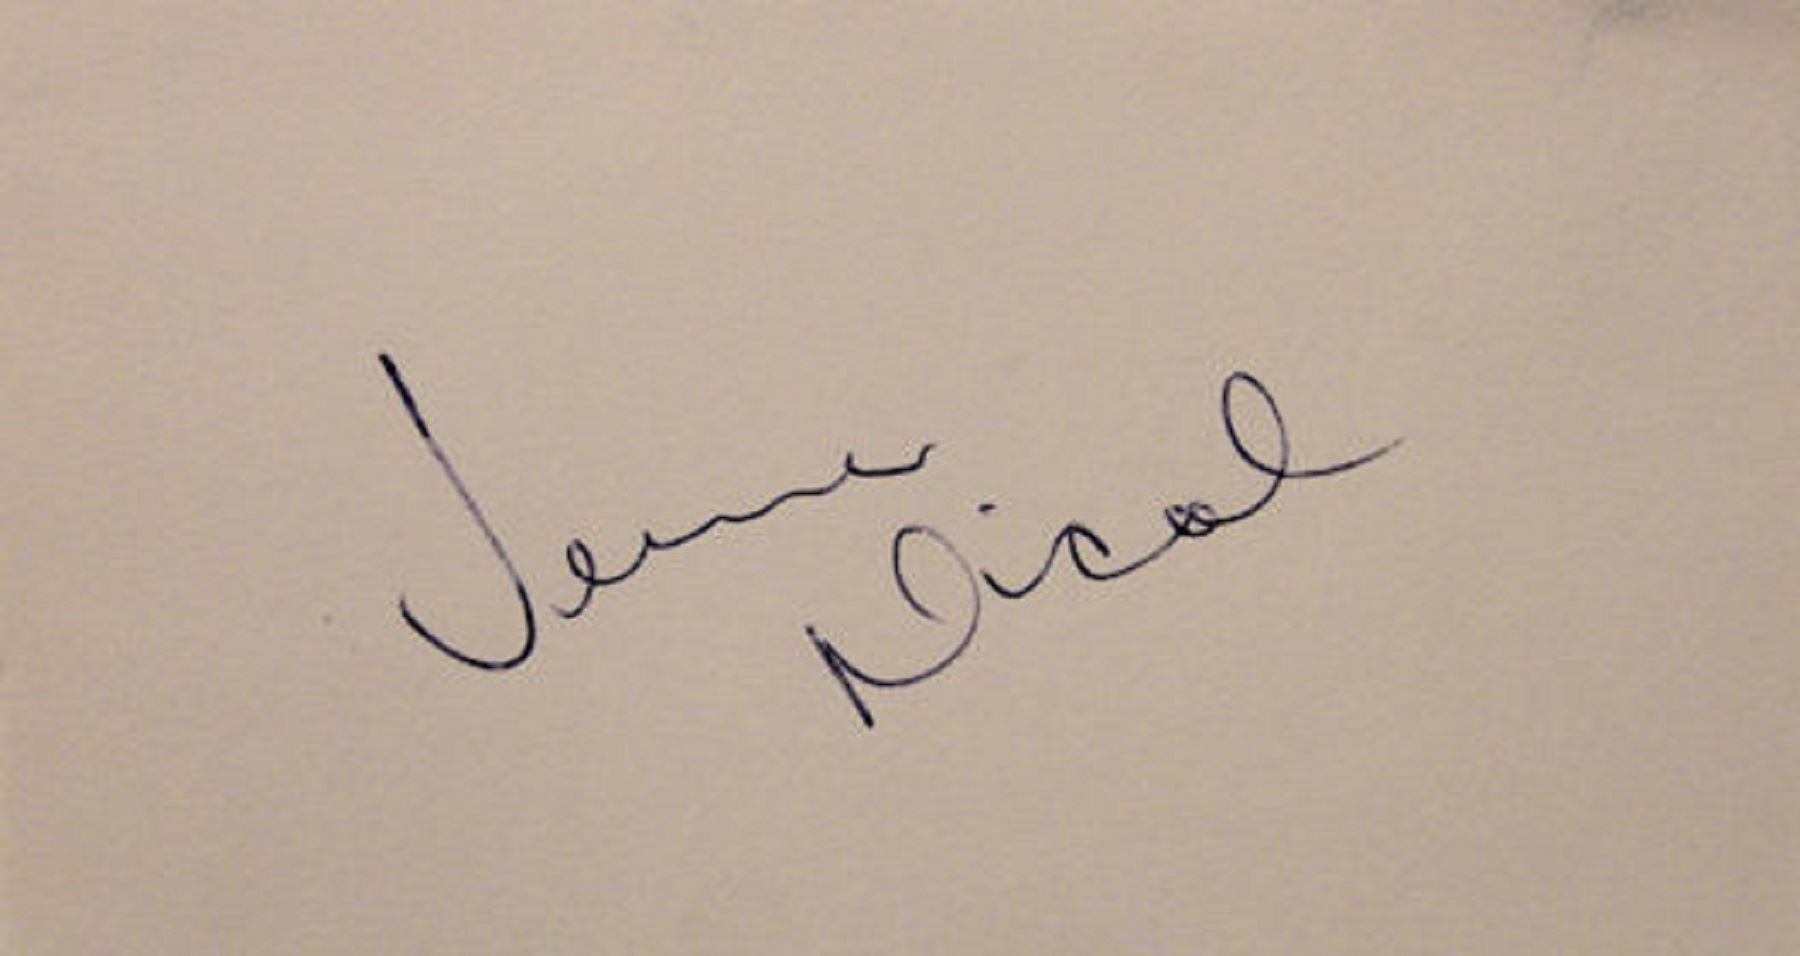 Jenner
Nicol